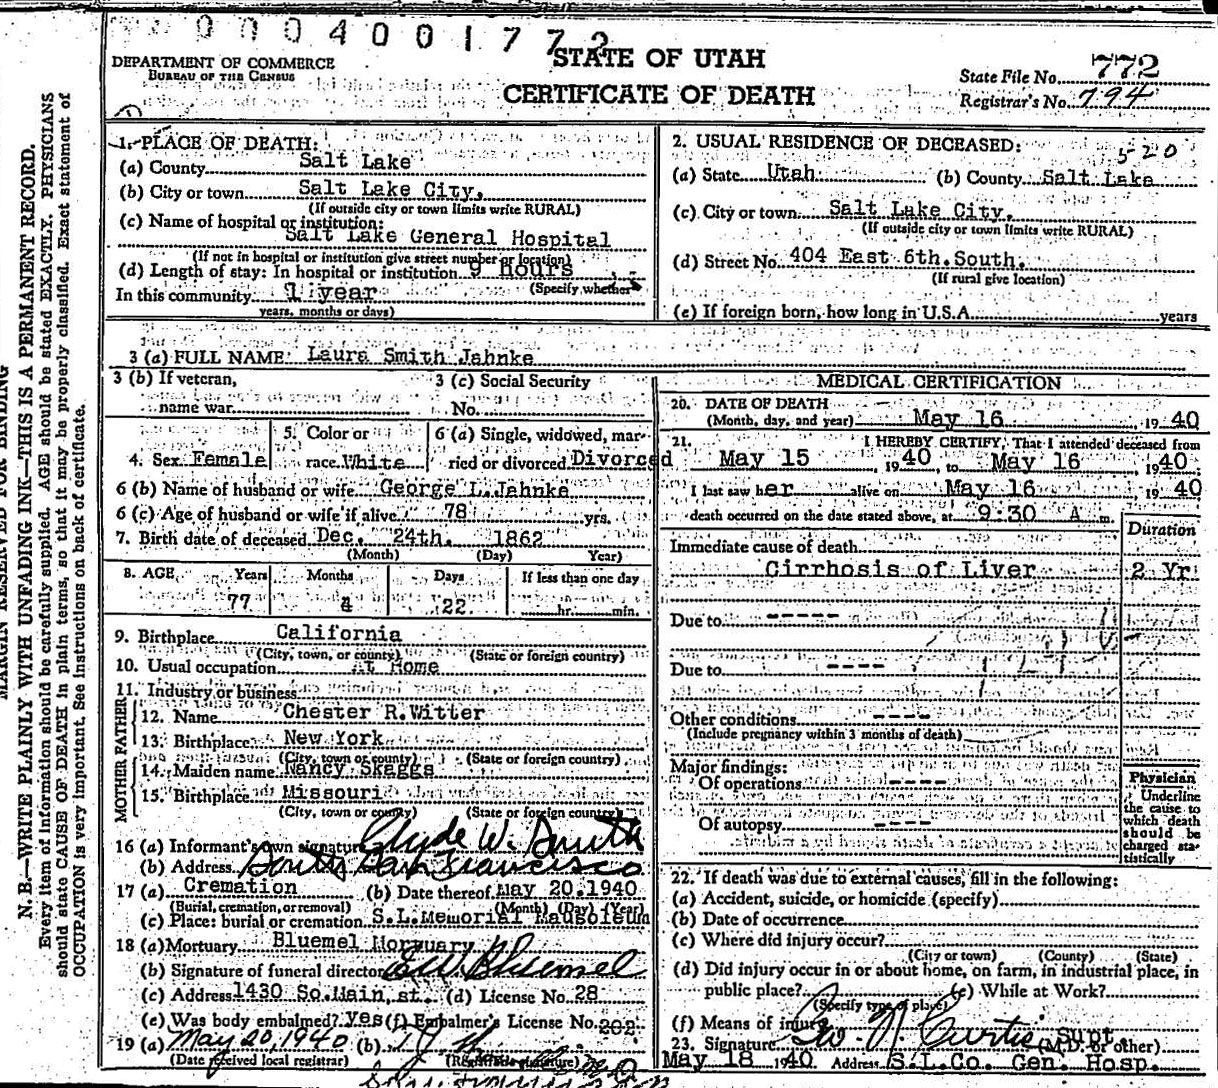 0004001772
STATE OF UTAH
CERTIFICATE OF DEATH
DEPARTMENT OF COMMERCE
BUREAU OF THE CENSUS
State File No. 772
Registrar's No. 794
MARGIN RESERVED FOR BINDING
N. B.—WRITE PLAINLY WITH UNFADING INK—THIS IS A PERMANENT RECORD.
Every item of information should be carefully supplied. AGE should be stated EXACTLY. PHYSICIANS
should state CAUSE OF DEATH in plain terms, so that it may be properly classified. Exact statement of
OCCUPATION is very important. See instructions on back of certificate.
1. PLACE OF DEATH:
(a) County Salt Lake
(b) City or town Salt Lake City.
(If outside city or town limits write RURAL)
(c) Name of hospital or institution:
Salt Lake General Hospital
(If not in hospital or institution give street number or location)
(d) Length of stay: In hospital or institution 9 hours
(Specify whether
In this community 1 year
years, months or days)
2. USUAL RESIDENCE OF DECEASED:
520
(a) State Utah (b) County Salt Lake
(c) City or town Salt Lake City.
(If outside city or town limits write RURAL)
(d) Street No. 404 East 6th.South.
(If rural give location)
(e) If foreign born, how long in U.S.A. years
3 (a) FULL NAME: Laura Smith Jahnke
3 (b) If veteran,
name war
3 (c) Social Security
No.
4. Sex Female
5. Color or
race White
6 (a) Single, widowed, mar-
ried or divorced Divorced
6 (b) Name of husband or wife George L.Jahnke
6 (c) Age of husband or wife if alive 78 yrs.
7. Birth date of deceased Dec. 24th. 1862
(Month) (Day) Year)
8. AGE Years Months Days If less than one day
77 4 22 hr. min.
9. Birthplace California
(City, town, or county) (State or foreign country)
10. Usual occupation At Home
11. Industry or business
FATHER
12. Name Chester R.Witter
13. Birthplace New York
(City, town or county) (State or foreign country)
MOTHER
14. Maiden name Nancy Skaggs
15. Birthplace Missouri
(City, town or county) (State or foreign country)
16 (a) Informant's own signature Clyde W. Smith
(b) Address South San Francisco
17 (a) Cremation (b) Date thereof May 20.1940
(Burial, cremation, or removal) (Month) (Day) (Year)
(c) Place: burial or cremation S.L.Memorial Mausoleum
18 (a) Mortuary Bluemel Mortuary
(b) Signature of funeral director E.W. Bluemel
(c) Address 1430 So.Main.st. (d) License No. 28
(e) Was body embalmed? yes (f) Embalmer's License No. 202.
19 (a) May 20, 1940 (b)
(Date received local registrar) (Registrar's signature)
MEDICAL CERTIFICATION
20. DATE OF DEATH
(Month, day, and year) May 16 19 40
21. I HEREBY CERTIFY, That I attended deceased from
May 15, 19 40, to May 16, 19 40.
I last saw her alive on May 16 19 40
death occurred on the date stated above, at 9:30 A m.
Duration
Immediate cause of death
Cirrhosis of Liver 2 Yr
Due to -----
Due to ----
Other conditions ----
(Include pregnancy within 3 months of death)
Major findings:
Of operations ----
Of autopsy ----
Physician
Underline
the cause to
which death
should be
charged sta-
tistically
22. If death was due to external causes, fill in the following:
(a) Accident, suicide, or homicide (specify)
(b) Date of occurrence
(c) Where did injury occur?
(City or town) (County) (State)
(d) Did injury occur in or about home, on farm, in industrial place, in
public place? (e) While at Work?
(Specify type of place)
(f) Means of injury
23. Signature W. N. Curtis Supt.
(M.D. or other)
May 18 19 40 Address S.L.Co. Gen. Hosp.